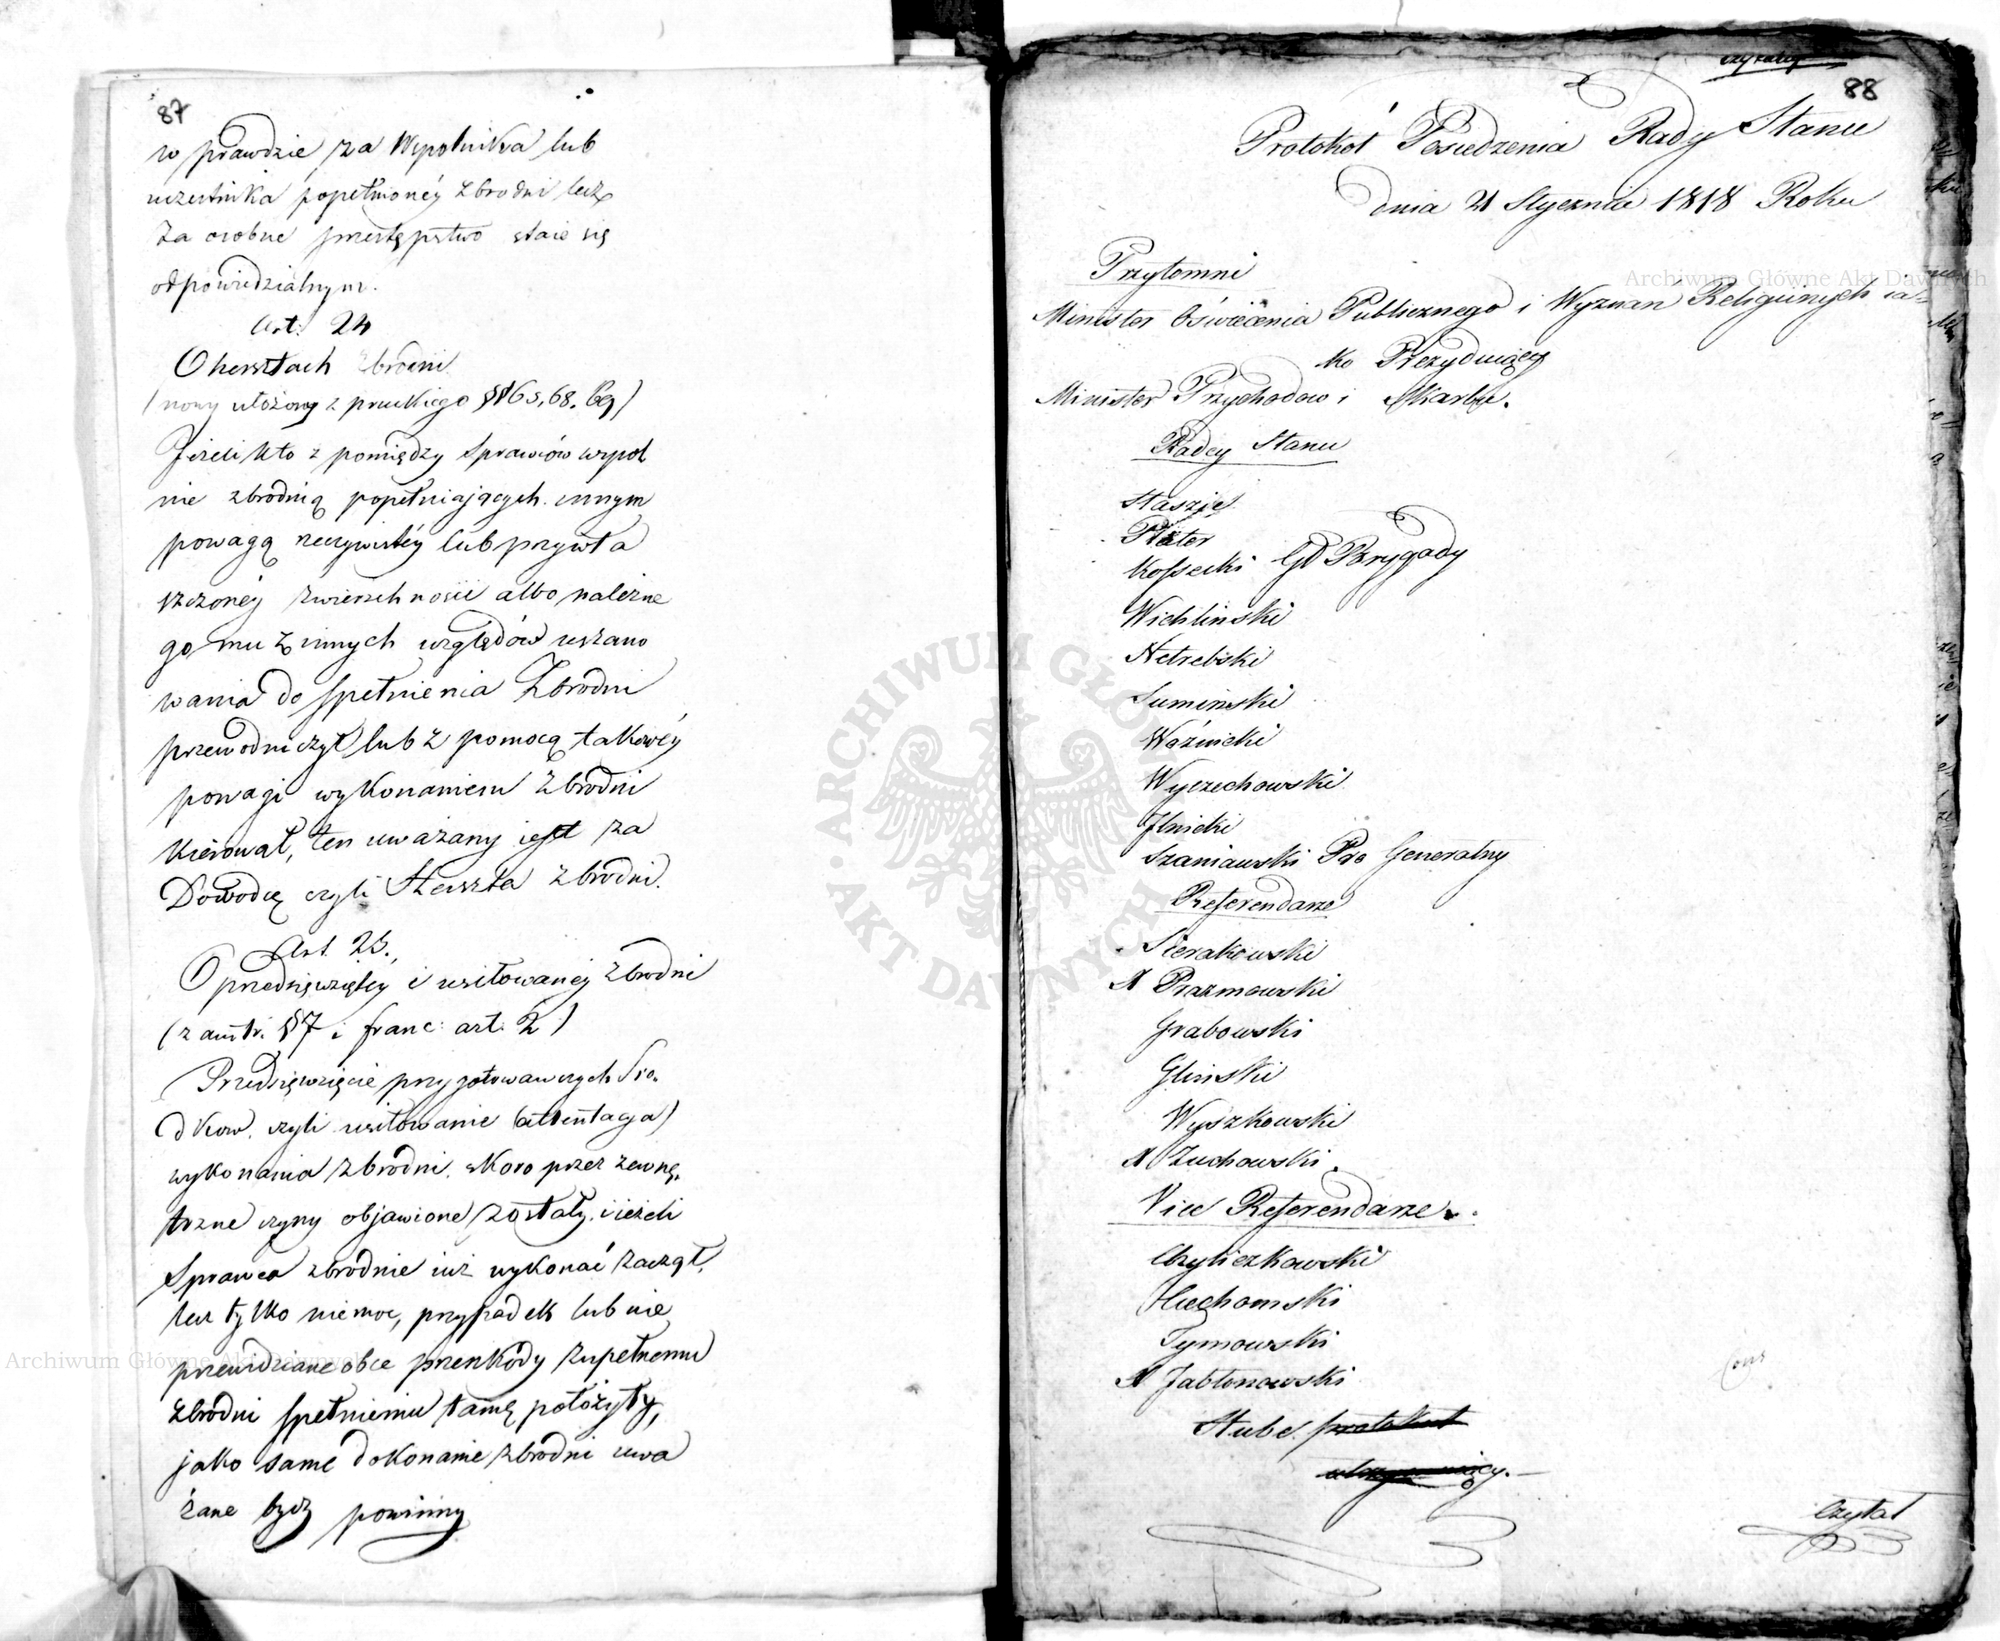 87
w prawdzie za Wspolnika lub
uczestnika popełnioney zbrodni lecz
za osobne przestępstwo staie się
odpowiedzialnym.
Art: 24
O hersztach zbrodni
(nowy ułożony z pruskiego §§ 65, 68. 69)
Jeżeli kto z pomiędzy sprawców wspol
nie zbrodnią popełniających innym
powagą rzeczywistéy lub przywła
szczonéy zwierzchności albo należne
go mu z innych względów uszano
wania do spełnienia Zbrodni
przewodniczył lub z pomocą takowéy
powagi wykonaniem Zbrodni
kierował, ten uważany iest za
Dowodcę czyli Herszta zbrodni.
Art. 25.
O przedsięwziętéy i usiłowanéy Zbrodni
(z austr. § 7 i franc: art. 2)
Przedsięwzięcie przygotowawczych Śro
dkow czyli usiłowanie (attentacja)
wykonania zbrodni skoro przez zewnę
trzne czyny objawione zostały i ieżeli
Sprawca zbrodnie iuż wykonać zaczął,
lecz tylko niemoc, przypadek lub nie
przewidziane obce przeszkody zupełnemu
zbrodni spełnieniu tamę położyły,
jako same dokonanie zbrodni uwa
żane bydź powinny
88
Protokół Posiedzenia Rady Stanu
dnia 21 Stycznia 1818 Roku
Przytomni
Minister Oświecenia Publicznego i Wyznań Religiinych ia-
ko Prezyduiący
Minister Przychodow i Skarbu.
Radcy Stanu
Staszic
Plater
Kossecki GD Brygady
Wichlinski
Netrebski
Suminski
Woźnicki
Wyczechowski
Ilnicki
Szaniawski Pro Generalny
Referendarze
Sierakowski
A Prazmowski
Grabowski
Glinski
Wyszkowski
A Żuchowski.
Vice Referendarze.
Chyliczkowski
Ciechomski
Tymowski
A Jabłonowski
Hube protokuł
utrzymuiący.
Czytał
Archiwum Główne Akt Dawnych
Archiwum Główne Akt Dawnych
ARCHIWUM GŁÓWNE AKT DAWNYCH